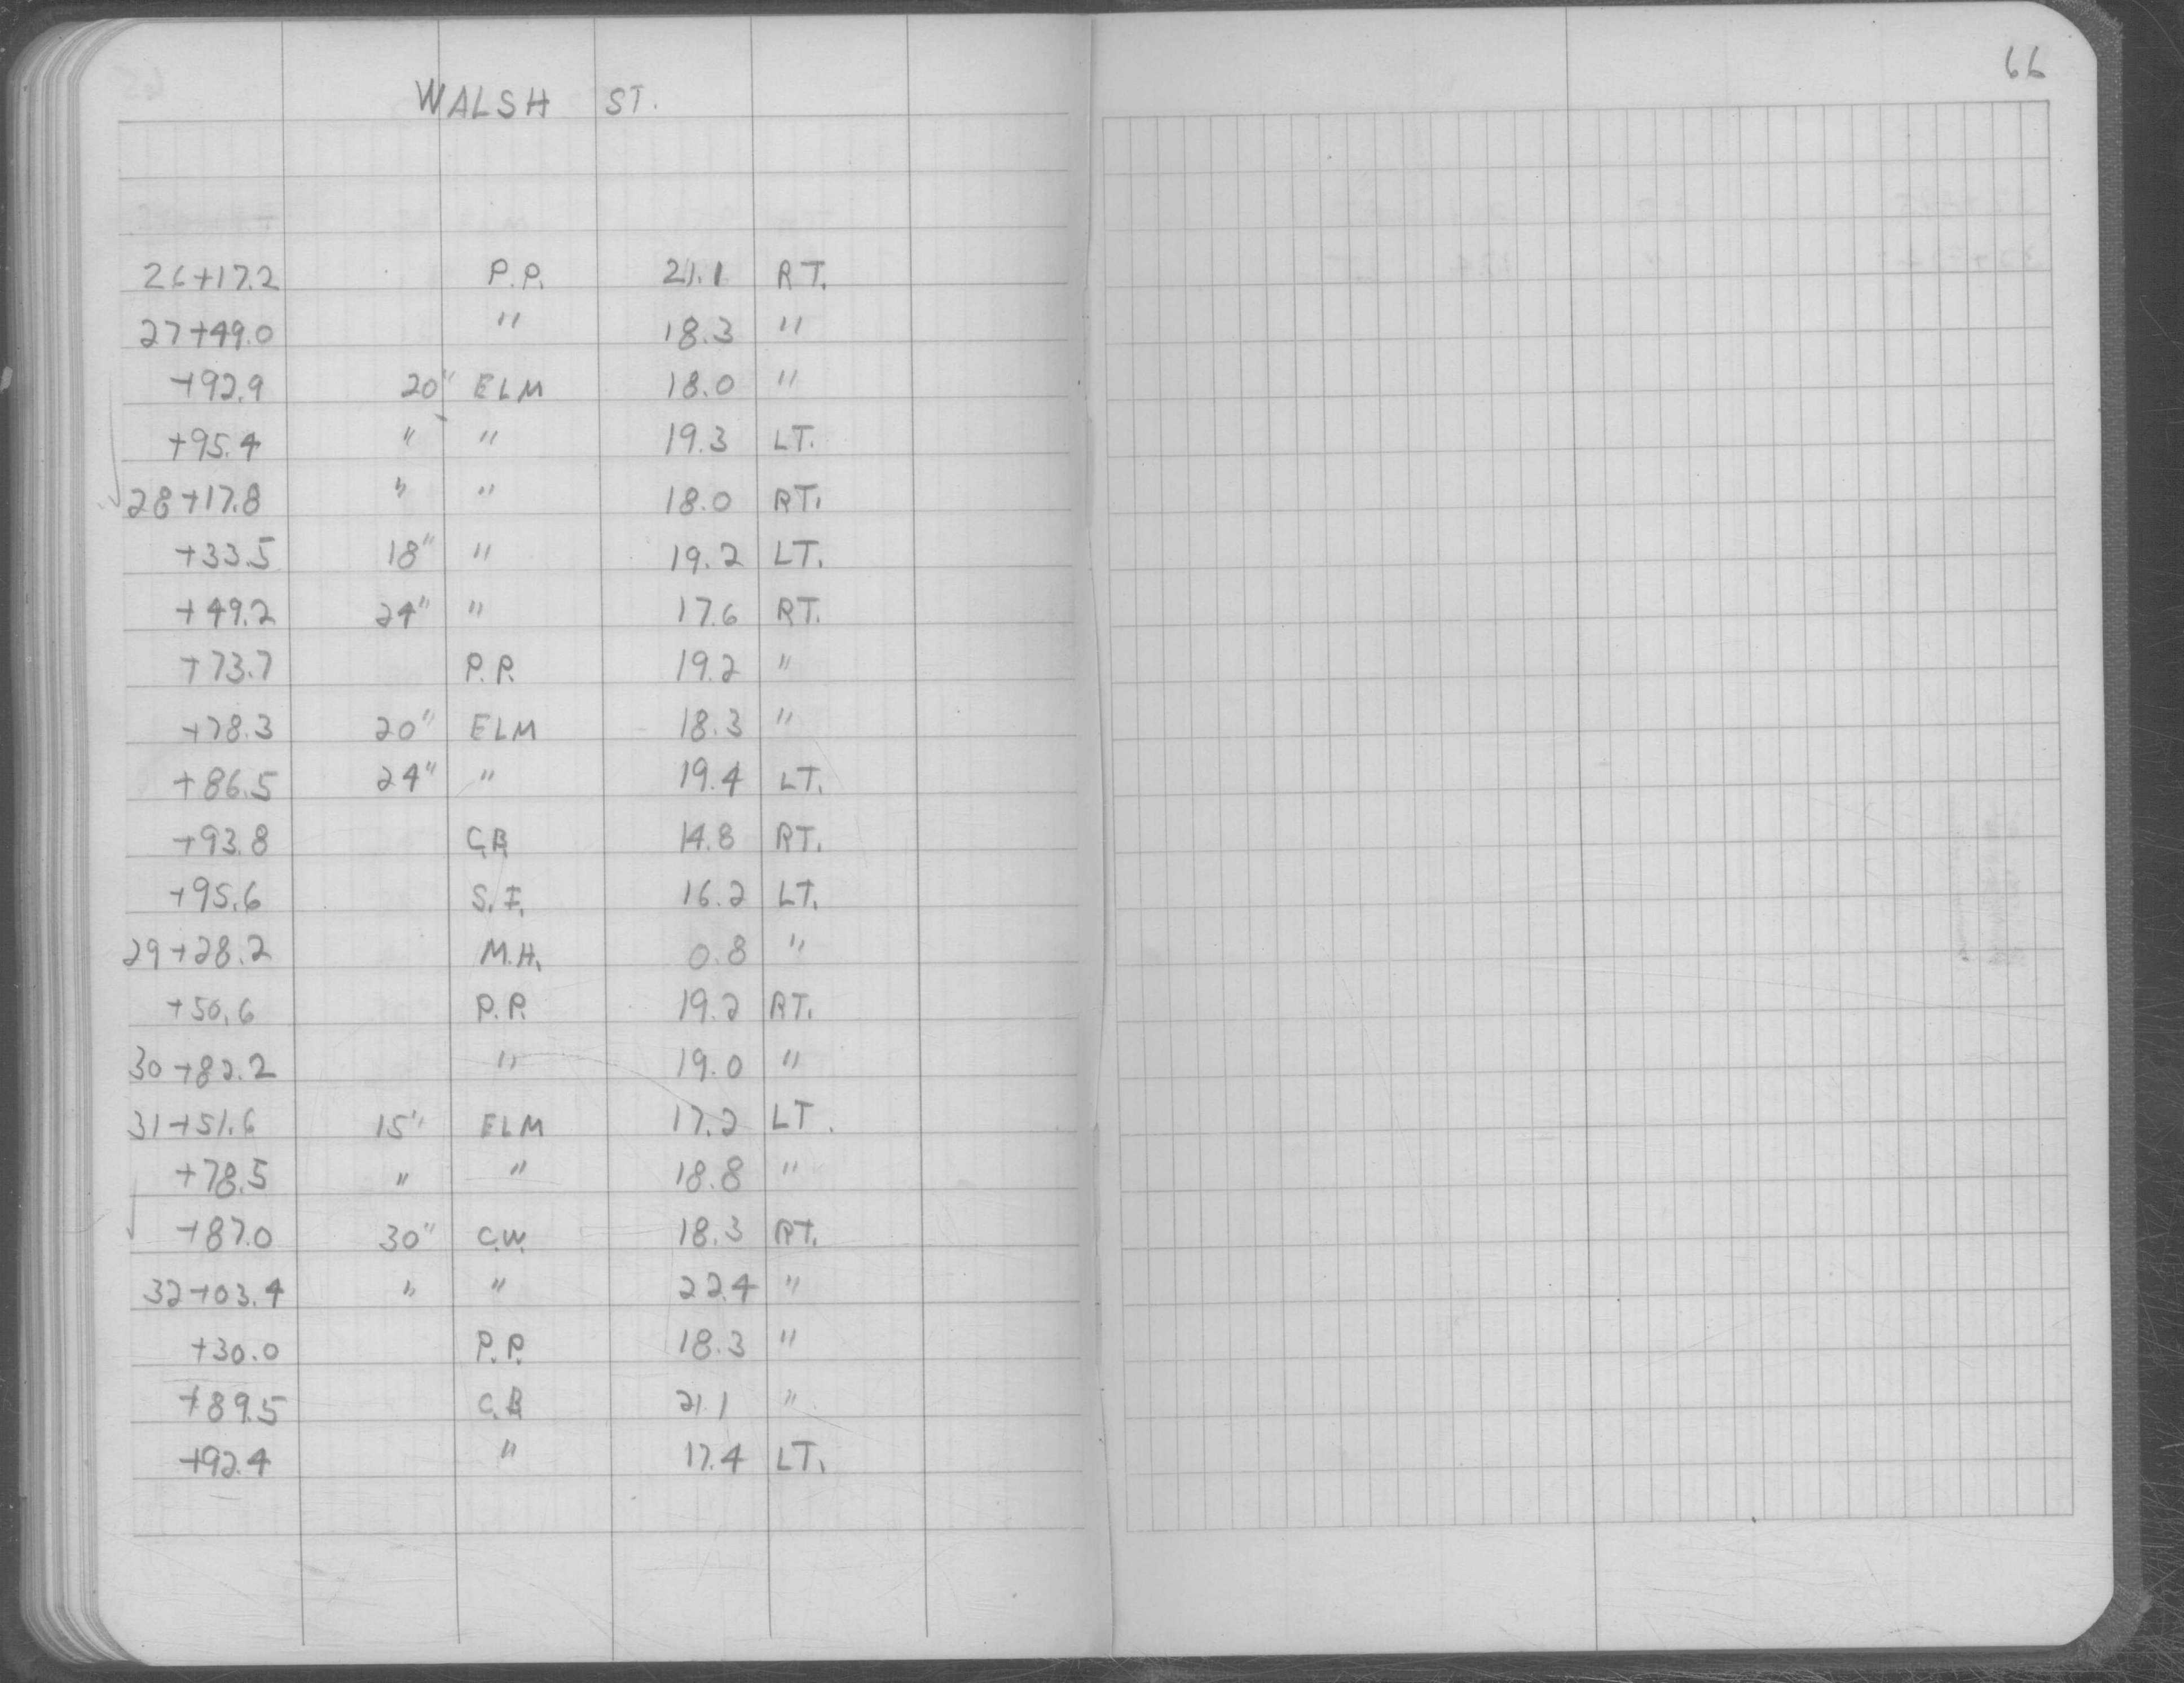 WALSH ST.
66
26+17.2 P.P. 21.1 RT.
27+49.0 " 18.3 "
+92.9 20" ELM 18.0 "
+95.4 " " 19.3 LT.
28+17.8 " " 18.0 RT.
+33.5 18" " 19.2 LT.
+49.2 24" " 17.6 RT.
+73.7 P.P. 19.2 "
+78.3 20" ELM 18.3 "
+86.5 24" " 19.4 LT.
+93.8 C.B. 14.8 RT.
+95.6 S.I. 16.2 LT.
29+28.2 M.H. 0.8 "
+50.6 P.P. 19.2 RT.
30+82.2 " 19.0 "
31+51.6 15" ELM 17.2 LT.
+78.5 " " 18.8 "
+87.0 30" C.W. 18.3 RT.
32+03.4 " " 22.4 "
+30.0 P.P. 18.3 "
+89.5 C.B. 21.1 "
+92.4 " 17.4 LT.